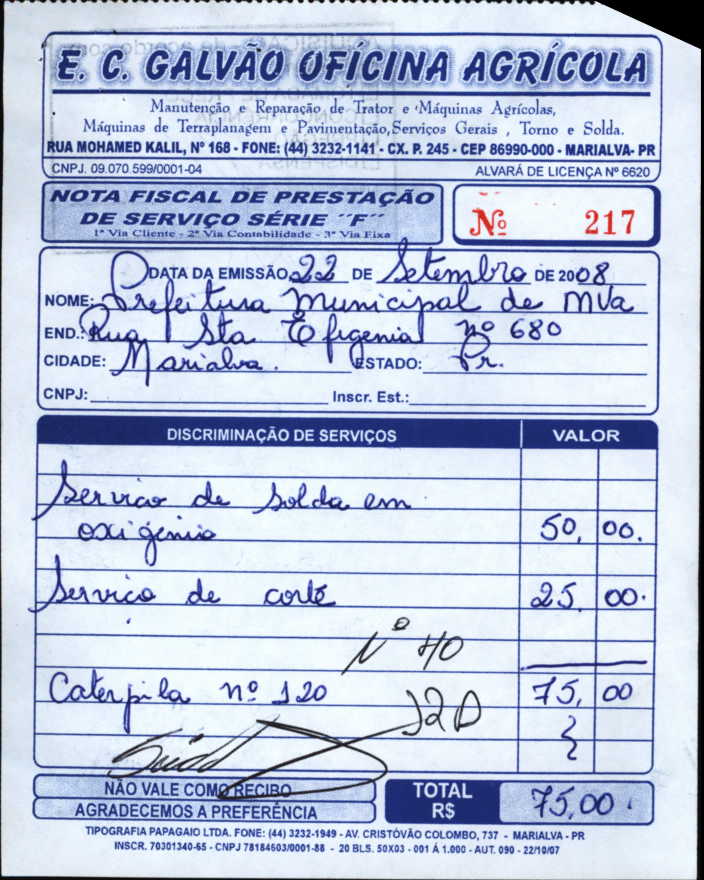 E. C. GALVÃO OFICINA AGRÍCOLA
Manutenção e Reparação de Trator e Máquinas Agrícolas,
Máquinas de Terraplanagem e Pavimentação, Serviços Gerais , Torno e Solda.
RUA MOHAMED KALIL, Nº 168 - FONE: (44) 3232-1141 - CX. P. 245 - CEP 86990-000 - MARIALVA- PR
CNPJ. 09.070.599/0001-04 ALVARÁ DE LICENÇA Nº 6620
NOTA FISCAL DE PRESTAÇÃO
DE SERVIÇO SÉRIE "F"
1ª Via Cliente - 2ª Via Contabilidade - 3ª Via Fixa
Nº 217
DATA DA EMISSÃO 22 DE Setembro DE 2008
NOME: Prefeitura Municipal de MVa
END.: Rua Sta Efigenia nº 680
CIDADE: Marialva. ESTADO: Pr.
CNPJ: Inscr. Est.:
DISCRIMINAÇÃO DE SERVIÇOS VALOR
Servico de solda em
oxigênio 50,00.
Serviço de corte 25,00.
Nº 40
Caterpila nº 120 75,00
NÃO VALE COMO RECIBO
AGRADECEMOS A PREFERÊNCIA
TOTAL R$ 75,00.
TIPOGRAFIA PAPAGAIO LTDA. FONE: (44) 3232-1949 - AV. CRISTÓVÃO COLOMBO, 737 - MARIALVA - PR
INSCR. 70301340-65 - CNPJ 78184603/0001-88 - 20 BLS. 50X03 - 001 Á 1.000 - AUT. 090 - 22/10/07